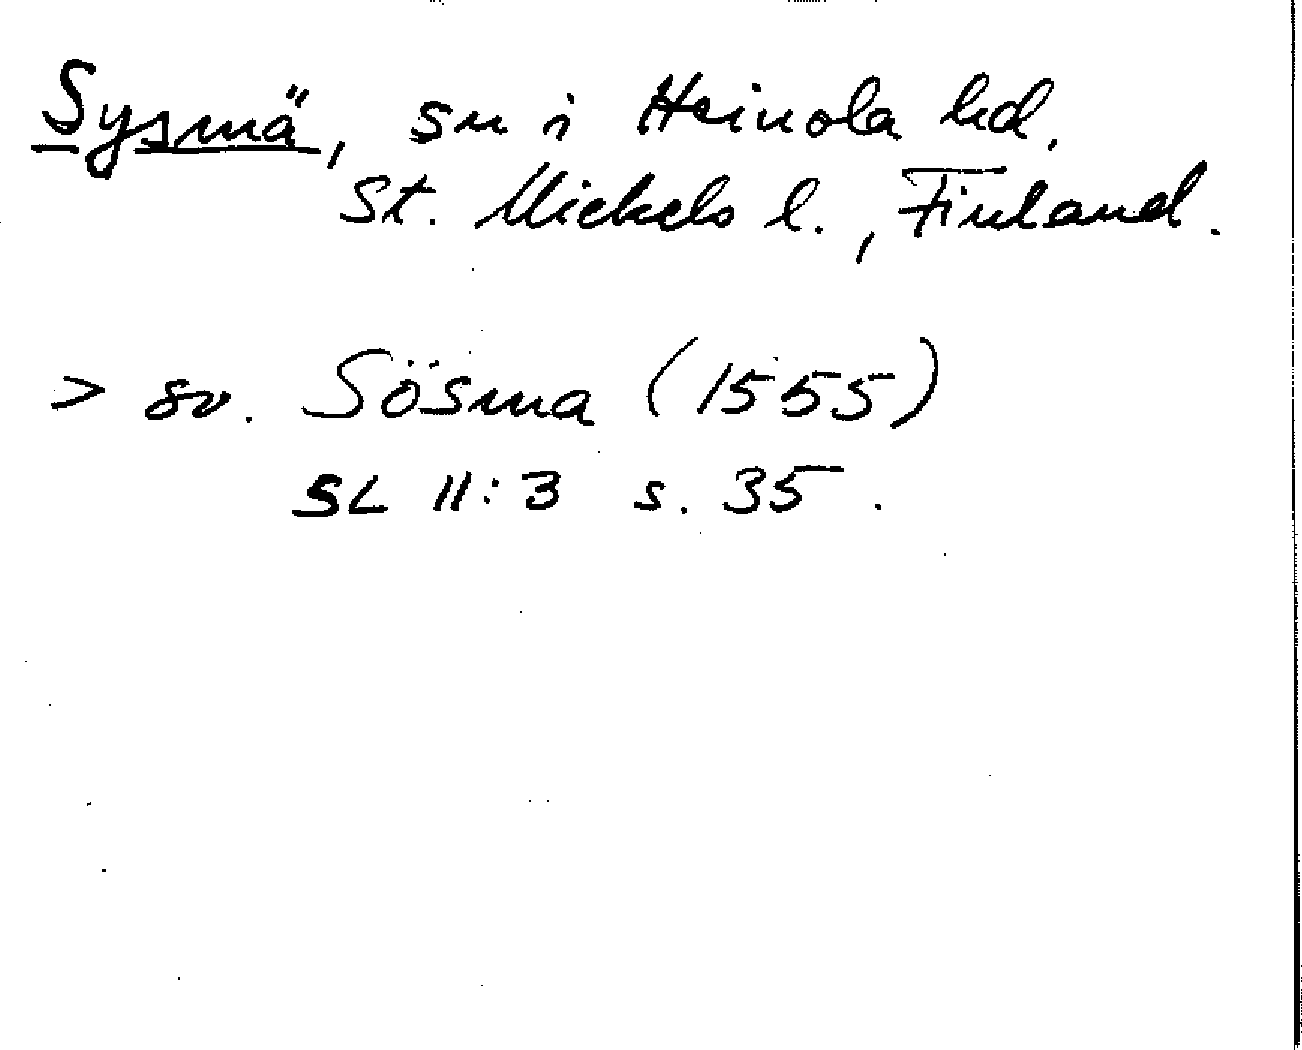 Sysmä, sn i Heinola hd,
St. Michels l., Finland.
> sv. Sösma (1555)
SL 11:3 s. 35.